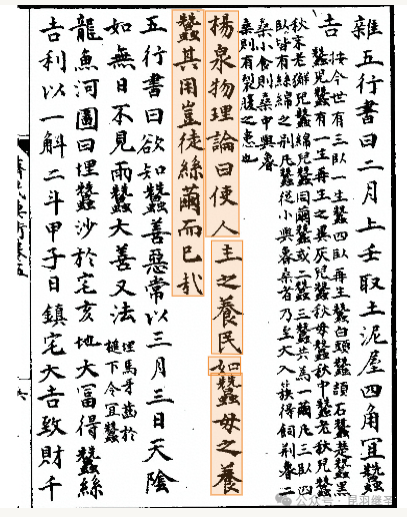 雜五行書曰二月上壬取土泥屋四角宜蠶
吉
按今世有三臥一生蠶四臥再生蠶白頭蠶頡石蠶楚蠶黑
蠶兒蠶有一生再生之異灰兒蠶秋母蠶秋中蠶老秋兒蠶
秋末老獬兒蠶綿兒蠶同繭蠶或二蠶三蠶共為一繭凡三臥四
臥皆有絲綿之別凡蠶從小與魯桑者乃至大入簇得飼荊魯二
桑小食則桑中與魯
桑則有裂腹之患也
楊泉物理論曰使人主之養民如蠶母之養
蠶其用豈徒絲繭而已哉
五行書曰欲知蠶善惡常以三月三日天陰
如無日不見雨蠶大善又法
埋馬牙齒於
槌下令宜蠶
龍魚河圖曰埋蠶沙於宅亥地大富得蠶絲
吉利以一斛二斗甲子日鎮宅大吉致財千
六
公众号·昆羽继圣